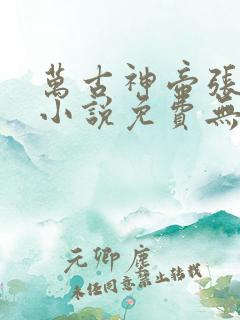 萬古神帝張
小說免費無
元卿塵
未经同意禁止转载